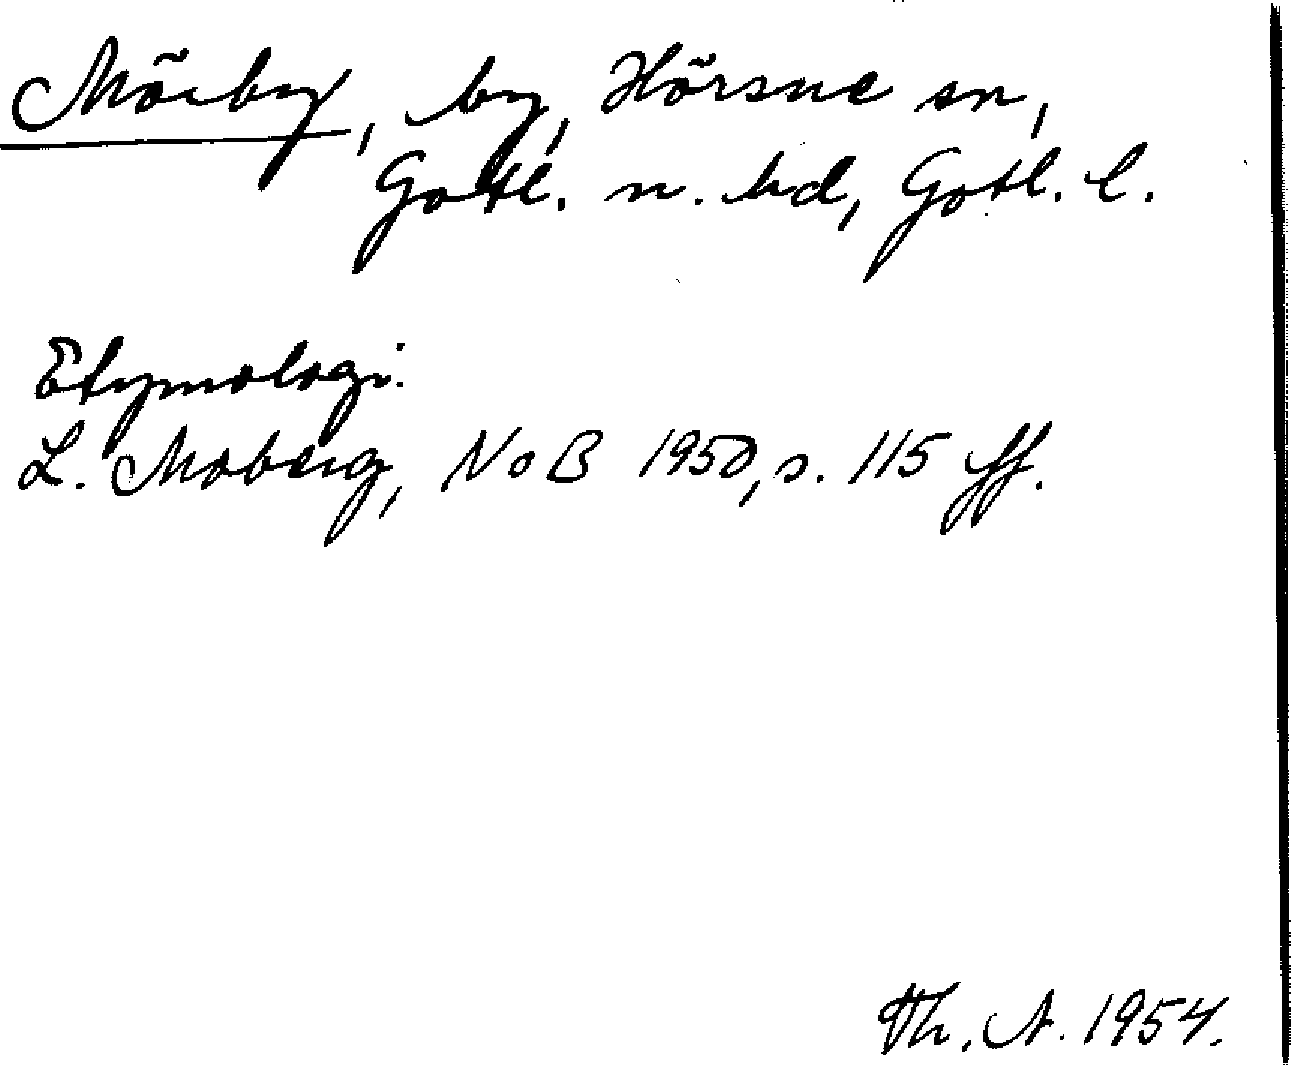 Mörby, by, Hörsne sn,
Gotl. n. hd, Gotl. l.
Etymologi.
L. Moberg, NoB 1950, s. 115 ff.
Th. A. 1954.